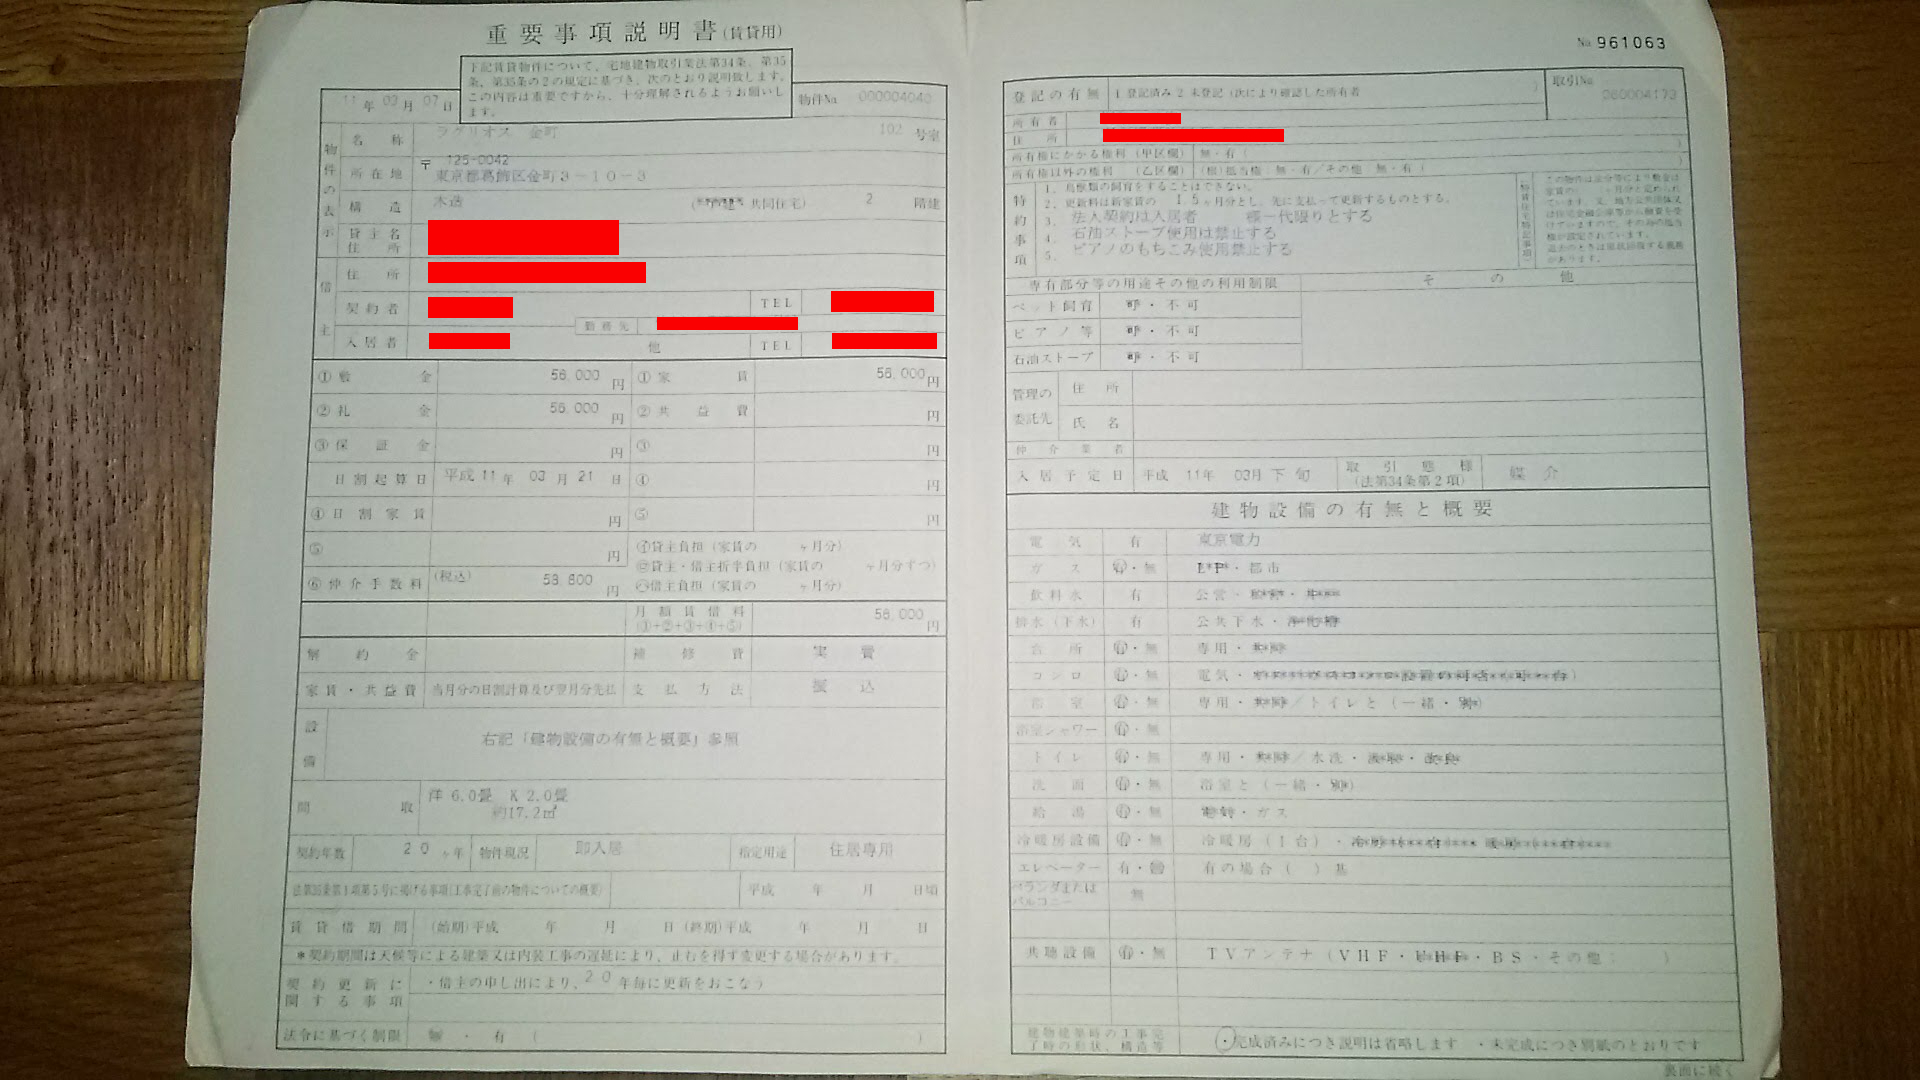 重要事項説明書(賃貸用)
下記賃貸物件について、宅地建物取引業法第34条、第35
条、第35条の2の規定に基づき、次のとおり説明致します。
この内容は重要ですから、十分理解されるようお願いし
ます。
11年 03月 07日
物件No. 000004040
物件の表示
名称 ラグリオス 金町 102 号室
所在地 〒 125-0042
東京都葛飾区金町3-10-3
構造 木造 共同住宅) 2 階建
貸主名
住所
借主
住所
契約者 TEL
勤務先
入居者 他 TEL
①敷金 56,000 円 ①家賃 56,000 円
②礼金 56,000 円 ②共益費 円
③保証金 円 ③ 円
日割起算日 平成 11年 03月 21日 ④ 円
④日割家賃 円 ⑤ 円
⑤ 円
⑥仲介手数料 (税込) 58,800 円
㋑貸主負担(家賃の ヶ月分)
㋺貸主・借主折半負担(家賃の ヶ月分ずつ)
㋩借主負担(家賃の ヶ月分)
月額賃借料
(①+②+③+④+⑤) 56,000 円
解約金 補修費 実費
家賃・共益費 当月分の日割計算及び翌月分先払 支払方法 振込
設備 右記「建物設備の有無と概要」参照
間取 洋 6.0畳 K 2.0畳
約17.2㎡
契約年数 20ヶ年 物件現況 即入居 指定用途 住居専用
法第35条第1項第5号に掲げる事項(工事完了前の物件についての概要) 平成 年 月 日頃
賃貸借期間 (始期)平成 年 月 日 (終期)平成 年 月 日
*契約期間は天候等による建築又は内装工事の遅延により、止むを得ず変更する場合があります。
契約更新に関する事項 ・借主の申し出により、20年毎に更新をおこなう
法令に基づく制限 無・有(
No. 961063
登記の有無 1 登記済み 2 未登記(次により確認した所有者 )
取引No. 060004173
所有者
住所
所有権にかかる権利(甲区欄) 無・有(
所有権以外の権利 (乙区欄) (根)抵当権:無・有/その他 無・有(
特約事項
1. 鳥獣類の飼育をすることはできない。
2. 更新料は新家賃の 1.5ヶ月分とし、先に支払って更新するものとする。
3. 法人契約は入居者 様一代限りとする
4. 石油ストーブ使用は禁止する
5. ピアノのもちこみ使用禁止する
専有部分等の用途その他の利用制限 その他
ペット飼育 可・不可
ピアノ等 可・不可
石油ストーブ 可・不可
管理の委託先
住所
氏名
仲介業者
入居予定日 平成 11年 03月下旬 取引態様
(法第34条第2項) 媒介
建物設備の有無と概要
電気 有 東京電力
ガス 有・無 ・都市
飲料水 有 公営・
排水(下水) 有 公共下水・
台所 有・無 専用・
コンロ 有・無 電気・
浴室 有・無 専用・ /トイレと(一緒・別)
浴室シャワー 有・無
トイレ 有・無 専用・ /水洗・
洗面 有・無 浴室と(一緒・別)
給湯 有・無 ・ガス
冷暖房設備 有・無 冷暖房(1台)・
エレベーター 有・無 有の場合( )基
ベランダまたは
バルコニー 無
共聴設備 有・無 TVアンテナ(VHF・UHF・BS・その他: )
建物建築時の工事完
了時の形状、構造等 ・完成済みにつき説明は省略します ・未完成につき別紙のとおりです
裏面に続く